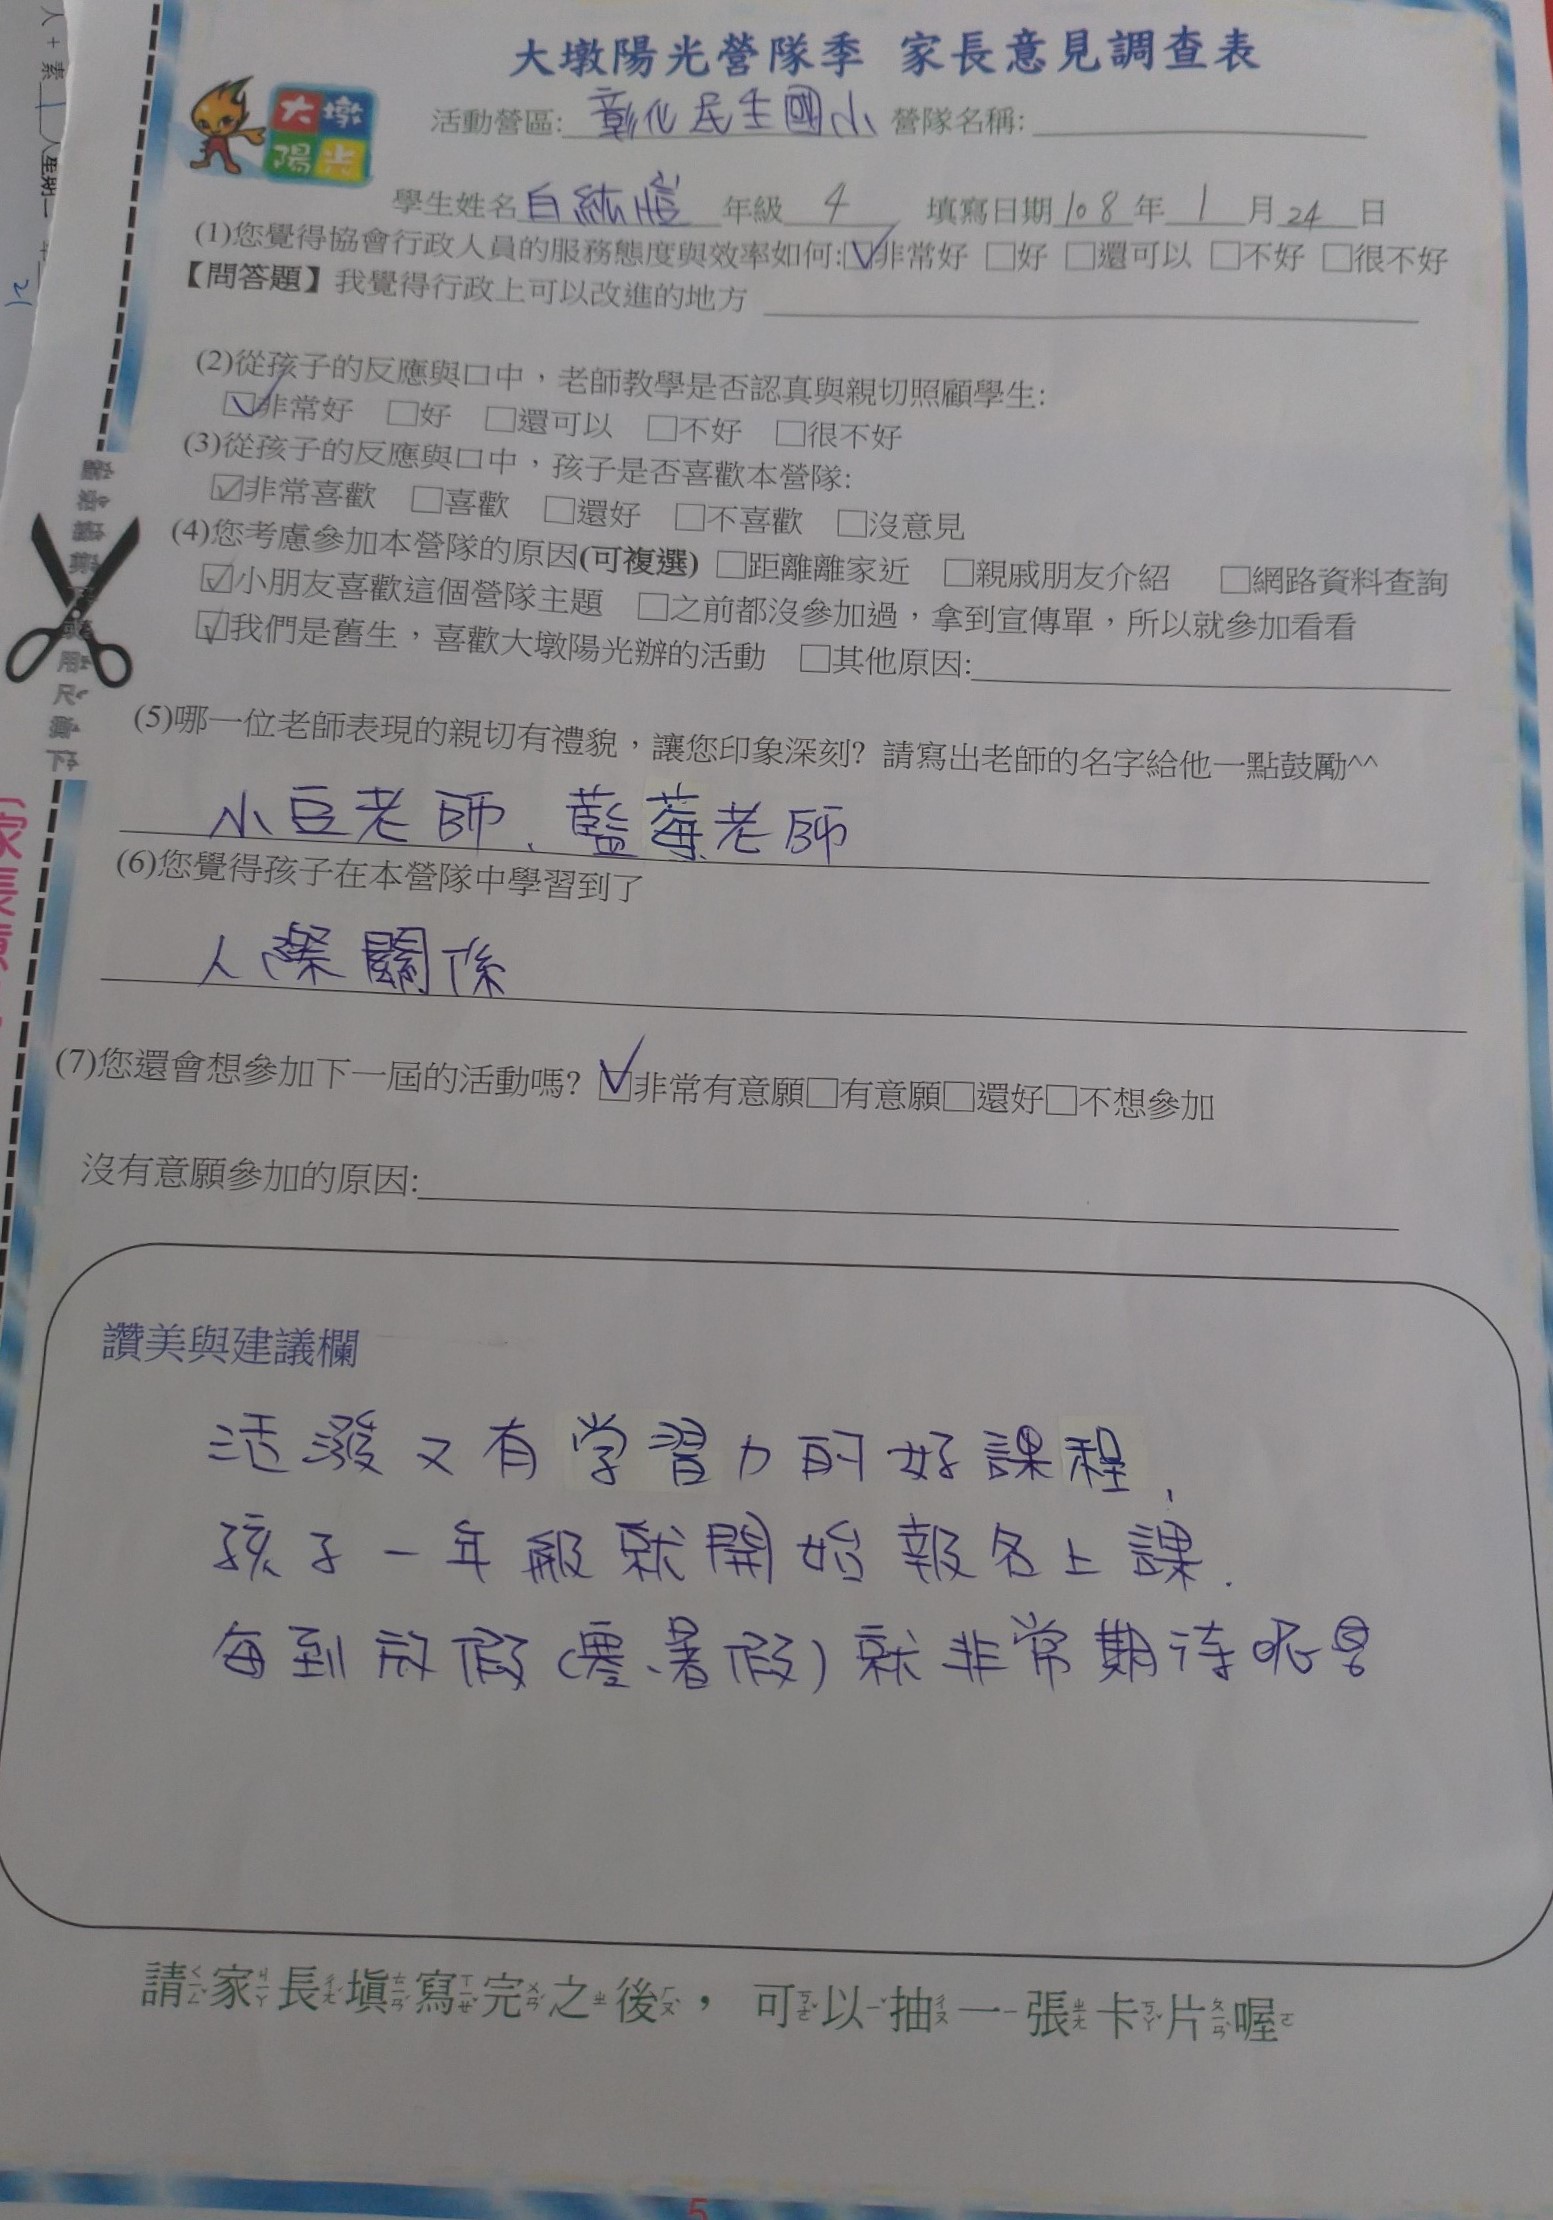 大墩陽光營隊季 家長意見調查表
大墩
陽光
活動營區: 彰化民生國小 營隊名稱:
學生姓名 白紘愷 年級 4 填寫日期 108 年 1 月 24 日
(1)您覺得協會行政人員的服務態度與效率如何:☑非常好 □好 □還可以 □不好 □很不好
【問答題】我覺得行政上可以改進的地方
(2)從孩子的反應與口中，老師教學是否認真與親切照顧學生:
☑非常好 □好 □還可以 □不好 □很不好
(3)從孩子的反應與口中，孩子是否喜歡本營隊:
☑非常喜歡 □喜歡 □還好 □不喜歡 □沒意見
(4)您考慮參加本營隊的原因(可複選) □距離離家近 □親戚朋友介紹 □網路資料查詢
☑小朋友喜歡這個營隊主題 □之前都沒參加過，拿到宣傳單，所以就參加看看
☑我們是舊生，喜歡大墩陽光辦的活動 □其他原因:
(5)哪一位老師表現的親切有禮貌，讓您印象深刻? 請寫出老師的名字給他一點鼓勵^^
小豆老師、藍莓老師
(6)您覺得孩子在本營隊中學習到了
人際關係
(7)您還會想參加下一屆的活動嗎? ☑非常有意願□有意願□還好□不想參加
沒有意願參加的原因:
讚美與建議欄
活潑又有学習力的好課程、
孩子一年級就開始報名上課.
每到放假(寒、暑假)就非常期待呢!
請ㄑㄧㄥˇ家ㄐㄧㄚ長ㄓㄤˇ填ㄊㄧㄢˊ寫ㄒㄧㄝˇ完ㄨㄢˊ之ㄓ後ㄏㄡˋ，可ㄎㄜˇ以ㄧˇ抽ㄔㄡ一ㄧ張ㄓㄤ卡ㄎㄚˇ片ㄆㄧㄢˋ喔ㄛ
5